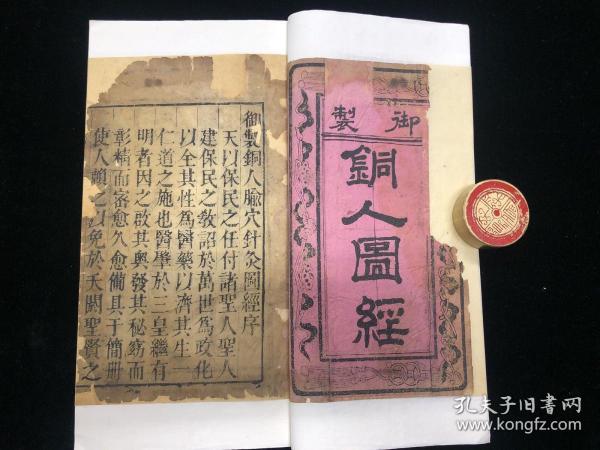 御製
銅人圖經
御製銅人腧穴針灸圖經序
天以保民之任付諸聖人聖人
建保民之敎詔於萬世爲政化
以全其性為醫藥以濟其生一
仁道之施也醫肇於三皇繼有
明者因之啟其奧發其秘窮而
彰精而密愈久愈備具于簡冊
使人賴之以免於夭閼聖賢之
孔夫子旧书网
www.kongfz.com